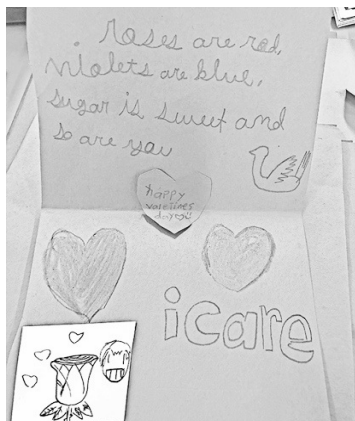 roses are red,
violets are blue,
sugar is sweet and
so are you
happy
valetines
day
i care